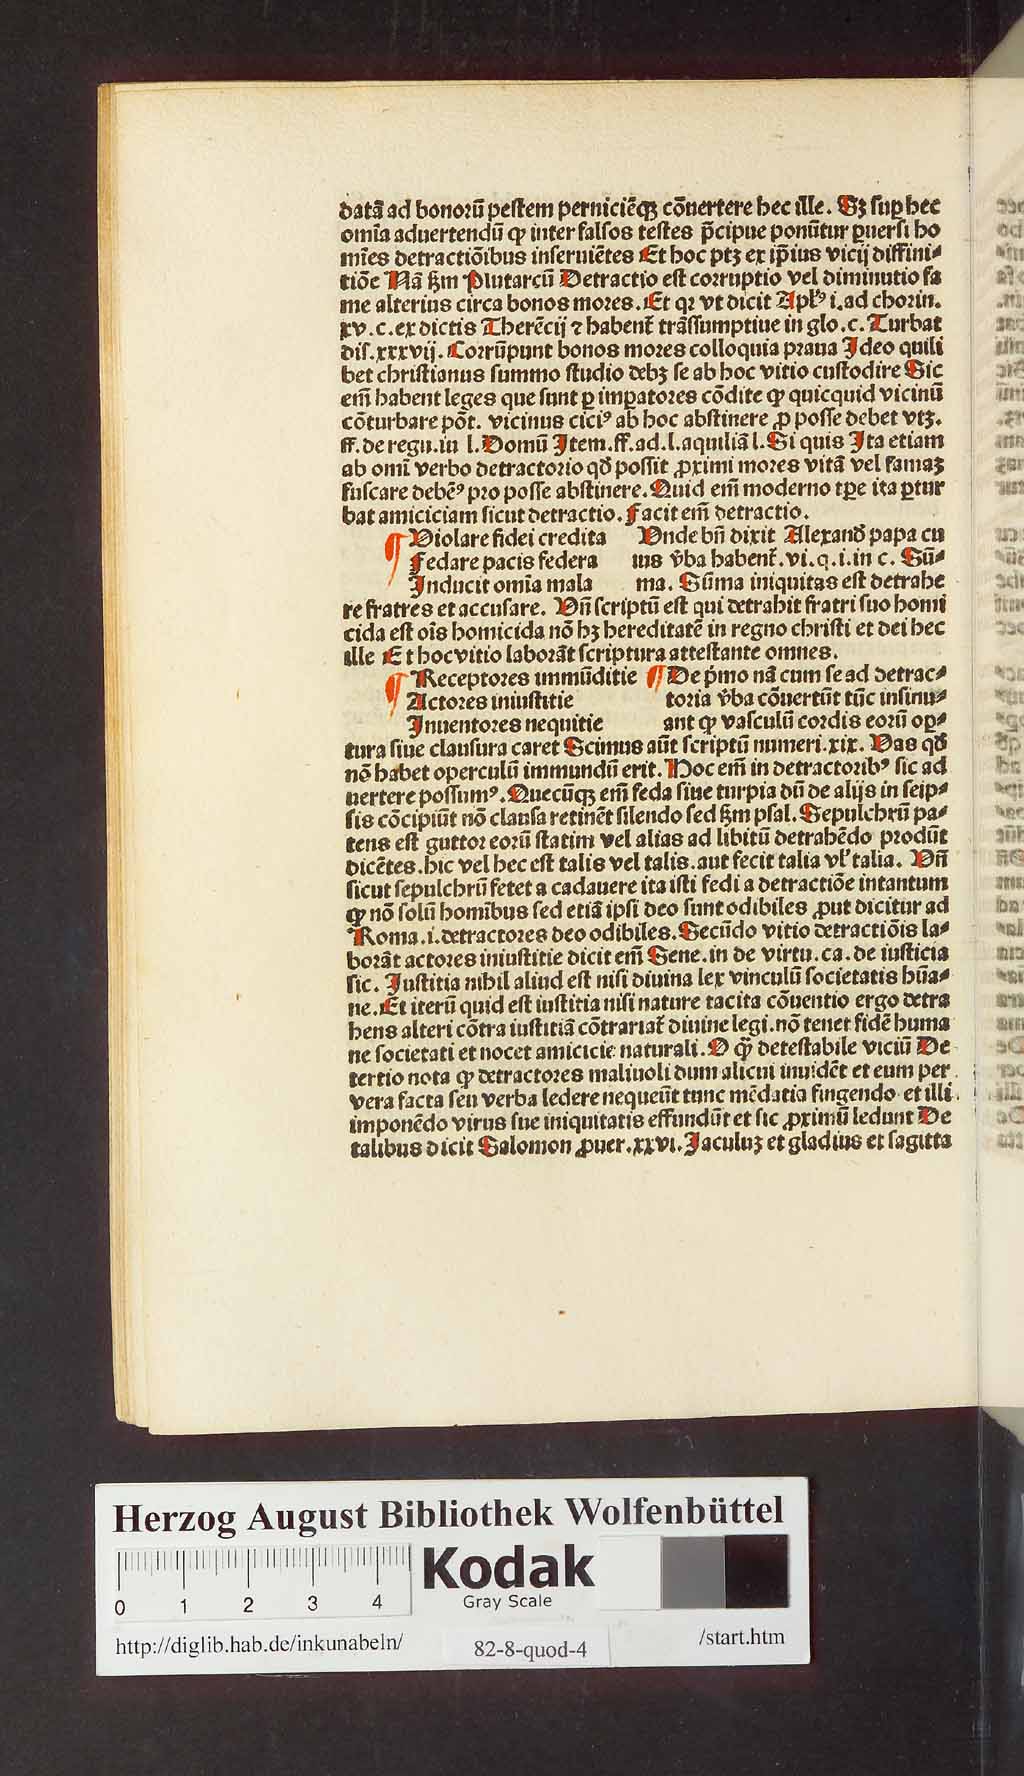 datā ad bonorū pestem perniciēqꝫ cōuertere hec ille. Sꝫ suꝑ hec
omīa aduertendū ꝙ inter falsos testes p̄cipue ponūtur ꝑuersi ho
mīes detractiōibus inseruiētes Et hoc ptꝫ ex ip̄ius vicij diffini⸗
tiōe Nā ẜm Plutarcū Detractio est corruptio vel diminutio fa
me alterius circa bonos mores. Et qꝛ vt dicit Aplꝰ i. ad chorin.
xv. c. ex dictis Therēcij ⁊ habent᷑ trāssumptiue in glo. c. Turbat
dis. xxxvij. Corrūpunt bonos mores colloquia praua Ideo quili
bet christianus summo studio debꝫ se ab hoc vitio custodire Sic
em̄ habent leges que sunt ꝑ imꝑatores cōdite ꝙ quicquid vicinū
cōturbare pōt. vicinus ciciꝰ ab hoc abstinere ꝓ posse debet vtꝫ.
ff. de regu. iu l. Domū Item. ff. ad. l. aquiliā l. Si quis Ita etiam
ab omī verbo detractorio qd̄ possit ꝓximi mores vitā vel famaꝫ
fuscare debēꝰ pro posse abstinere. Quid em̄ moderno tꝑe ita ꝑtur
bat amiciciam sicut detractio. Facit em̄ detractio.
¶ Violare fidei credita
Fedare pacis federa
Inducit omīa mala
Vnde bn̄ dixit Alexand̄ papa cu
ius v̄ba habent᷑. vi. q. i. in c. Sū⸗
ma. Sūma iniquitas est detrahe
re fratres et accusare. Vn̄ scriptū est qui detrahit fratri suo homi
cida est oīs homicida nō hꝫ hereditatē in regno christi et dei hec
ille Et hoc vitio laborāt scriptura attestante omnes.
¶ Receptores immūditie
Actores iniustitie
Inuentores nequitie
¶ De p̄mo nā cum se ad detrac⸗
toria v̄ba cōuertūt tūc insinu⸗
ant ꝙ vasculū cordis eorū op⸗
tura siue clausura caret Scimus aūt scriptū numeri. xix. Vas qd̄
nō habet operculū immundū erit. Hoc em̄ in detractoribꝰ sic ad
uertere possumꝰ. Quecūqꝫ em̄ feda siue turpia dū de alijs in seip⸗
sis cōcipiūt nō clausa retinēt silendo sed ẜm psal. Sepulchrū pa⸗
tens est guttor eorū statim vel alias ad libitū detrahēdo produ̅t
dicētes. hic vel hec est talis vel talis. aut fecit talia vl̓ talia. Vn̄
sicut sepulchrū fetet a cadauere ita isti fedi a detractiōe intantum
ꝙ nō solū homībus sed etiā ipsi deo sunt odibiles ꝓut dicitur ad
Roma. i. detractores deo odibiles. Secūdo vitio detractiōis la⸗
borāt actores iniustitie dicit em̄ Sene. in de virtu. ca. de iusticia
sic. Iustitia nihil aliud est nisi diuina lex vinculū societatis hūa⸗
ne. Et iterū quid est iustitia nisi nature tacita cōuentio ergo detra
hens alteri cōtra iustitiā cōtrariat᷑ diuine legi. nō tenet fidē huma
ne societati et nocet amicicie naturali. O ꝙ̄ detestabile viciū De
tertio nota ꝙ detractores maliuoli dum alicui inuidēt et eum per
vera facta seu verba ledere nequeūt tunc mēdatia fingendo et illi
imponēdo virus sue iniquitatis effundūt et sic ꝓximū ledunt De
talibus dicit Salomon ꝓuer. xxvi. Iaculuꝫ et gladius et sagitta
Herzog August Bibliothek Wolfenbüttel
0 1 2 3 4
Kodak
Gray Scale
http://diglib.hab.de/inkunabeln/
82-8-quod-4
/start.htm